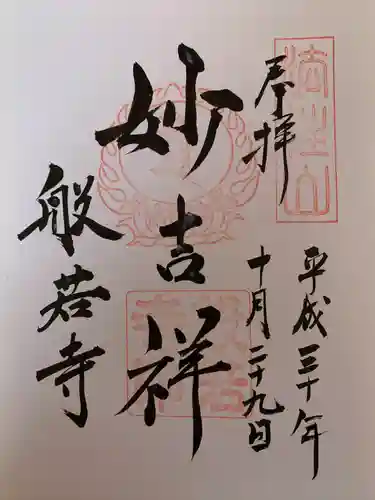 奉拝
法性山
平成三十年
十月二十九日
妙吉祥
般若寺